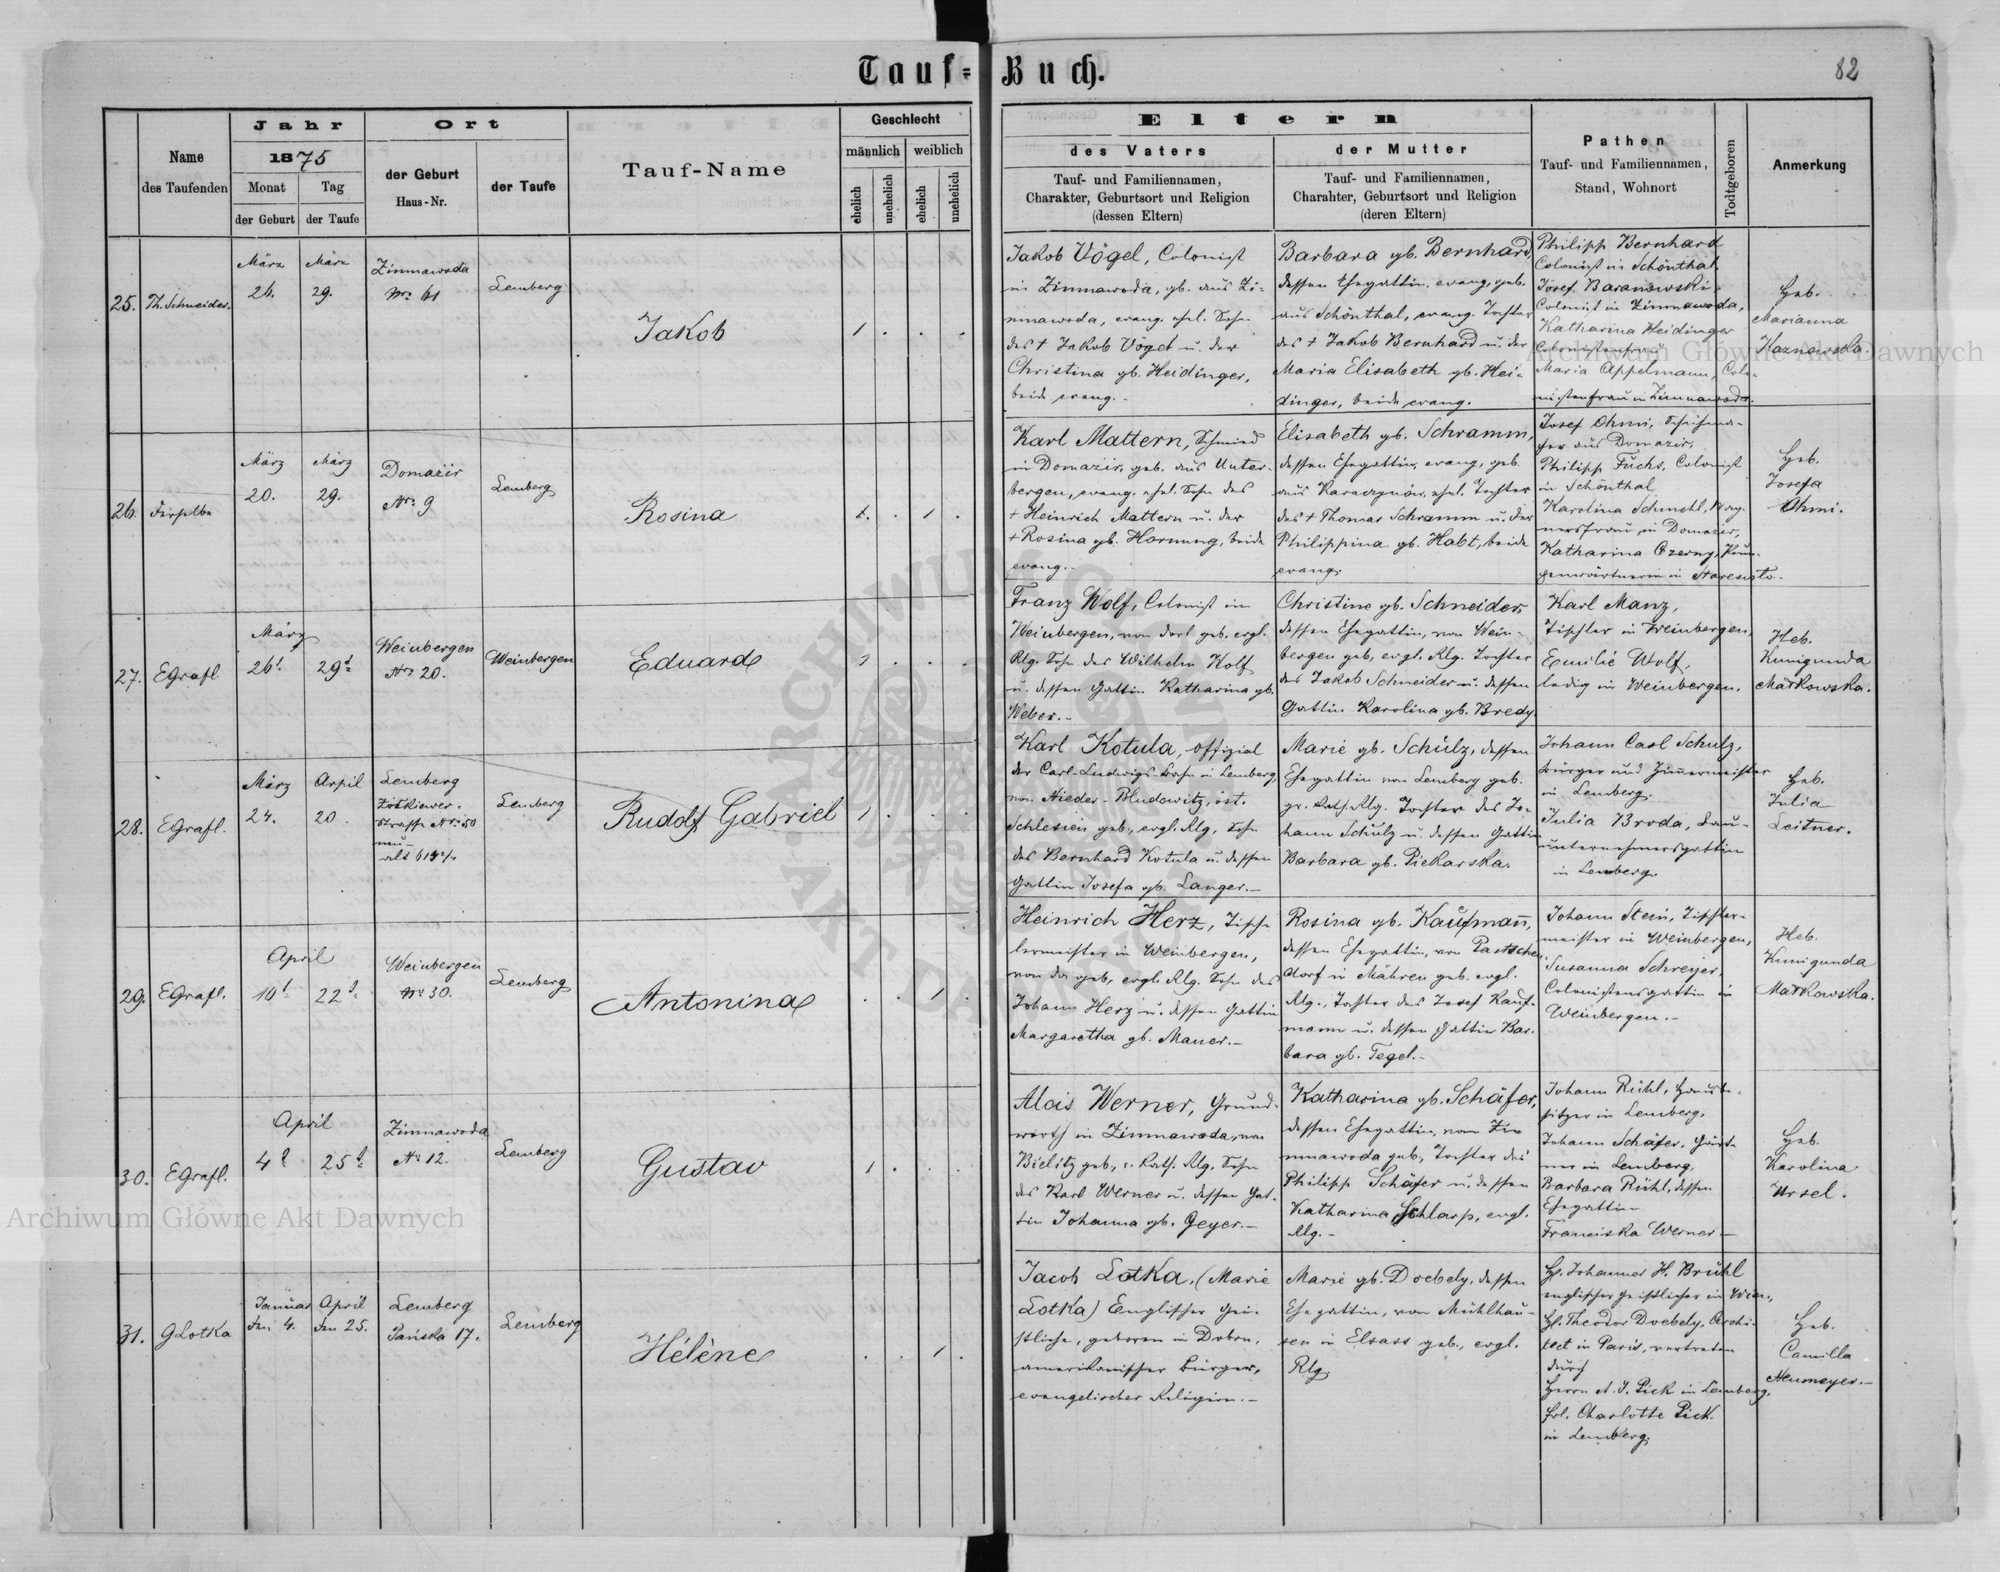 Tauf-Buch.
82
Name
des Taufenden
Jahr
1875
Monat
der Geburt
Tag
der Taufe
Ort
der Geburt
Haus-Nr.
der Taufe
Tauf-Name
Geschlecht
männlich
weiblich
ehelich
unehelich
ehelich
unehelich
Eltern
des Vaters
Tauf- und Familiennamen,
Charakter, Geburtsort und Religion
(dessen Eltern)
der Mutter
Tauf- und Familiennamen,
Charahter, Geburtsort und Religion
(deren Eltern)
Pathen
Tauf- und Familiennamen,
Stand, Wohnort
Todtgeboren
Anmerkung
25. Th. Schneider.
März
26.
März
29.
Zimnawoda
Nro 61
Lemberg
Jakob
1 . . .
Jakob Vögel, Colonist
in Zimnawoda, gb. aus Zi-
mnawoda, evang. ehel. Sohn
des † Jakob Vögel u. der
Christina gb. Heidinger,
beide evang.-
Barbara gb. Bernhard,
dessen Ehegattin, evang, geb.
aus Schönthal, evang. Tochter
des † Jakob Bernhard u. der
Maria Elisabeth gb. Hei-
dinger, beide evang.
Philipp Bernhard
Colonist in Schönthal,
Josef Baranowski
Colonist in Zimnawoda,
Katharina Heidinger
Colonistenfrau
Maria Appelmann, Colo-
nistenfrau in Zimnawoda.
Heb.
Marianna
Kaznowska.
26. Derselbe
März
20.
März
29.
Domażir
Nro 9
Lemberg
Rosina
. . 1 .
Karl Mattern, Schmied
in Domażir, geb. aus Unter-
bergen, evang. ehel. Sohn des
† Heinrich Mattern u. der
† Rosina gb. Hornung, beide
evang.-
Elisabeth gb. Schramm,
dessen Ehegattin, evang, geb.
aus ehel. Tochter
des † Thomas Schramm u. der
Philippina gb. Habt, beide
evang.
Josef Ohmi,
aus Domażir,
Philipp Fuchs, Colonist
in Schönthal
Karolina Schmehl, Wag-
nersfrau in Domażir,
Katharina Czerny,
in
Heb.
Josefa
Ohmi.
27. EGrafl
März
26t
29t
Weinbergen
Nro 20.
Weinbergen
Eduard
1 . . .
Franz Wolf, Colonist in
Weinbergen, von dort geb. evgl.
Rlg. Sohn des Wilhelm Wolf
u. dessen Gattin Katharina gb.
Weber.-
Christine gb. Schneider
dessen Ehegattin, von Wein-
bergen geb, evgl. Rlg. Tochter
des Jakob Schneider u. dessen
Gattin Karolina gb. Bredy.
Karl Manz,
Tischler in Weinbergen,
Emilie Wolf,
ledig in Weinbergen.
Heb.
Kunigunda
Markowska.
28. EGrafl.
März
24.
April
20.
Lemberg
Żółkiewer-
Strasse Nro 50
neu-
alt
Lemberg
Rudolf Gabriel
1 . . .
Karl Kotula, Offizial
der Carl-Ludwigs-Bahn in Lemberg,
von Nieder-Bludowitz, öst.
Schlesien geb., evgl. Rlg, Sohn
des Bernhard Kotula u. dessen
Gattin Josefa gb. Langer.-
Marie gb. Schulz, dessen
Ehegattin von Lemberg geb.
gr. kath. Rlg. Tochter des Jo-
hann Schulz u. dessen Gattin
Barbara gb. Piekarska.
Johann Carl Schulz,
Bürger und Zimmermeister
in Lemberg.
Julia Broda, Bau-
unternehmersgattin
in Lemberg.
Heb.
Julia
Leitner.
29. EGrafl.
April
10t
22t
Weinbergen
Nro 30.
Lemberg
Antonina
. . 1 .
Heinrich Herz, Tisch-
lermeister in Weinbergen,
von da geb, evgl. Rlg. Sohn des
Johann Herz u. dessen Gattin
Margaretha gb. Mauer.-
Rosina gb. Kaufmann,
dessen Ehegattin, von
dorf in Mähren geb. evgl.
Rlg., Tochter des Josef Kauf-
mann u. dessen Gattin Bar-
bara gb. Tegel.-
Johann Stein, Tischler-
meister in Weinbergen,
Susanna Schreyer,
Colonistensgattin in
Weinbergen.-
Heb.
Kunigunda
Markowska.
30. EGrafl.
April
4t
25t
Zimnawoda
Nro 12.
Lemberg
Gustav
1 . . .
Alois Werner, Grund-
wirth in Zimnawoda, von
Bielitz geb, r. kath. Rlg. Sohn
des Karl Werner u. dessen Gat-
tin Johanna gb. Geyer.-
Katharina gb. Schäfer,
dessen Ehegattin, von Zi-
mnawoda geb, Tochter des
Philipp Schäfer u. dessen
Katharina Schlarp, evgl.
Rlg.-
Johann Rühl, Hausbe-
sitzer in Lemberg,
Johann Schäfer, Gärt-
ner in Lemberg,
Barbara Rühl, dessen
Ehegattin
Franciska Werner-
Heb.
Karolina
Ursel.
31. GLotka
Januar
den 4.
April
den 25.
Lemberg
Pańska 17.
Lemberg
Hélène
. . 1 .
Jacob Lotka. (Marie
Lotka) Englischer Gei-
stlicher, geboren in
amerikanischer Bürger,
evangelischer Religion.-
Marie gb. Doebely, dessen
Ehegattin, von Mühlhau-
sen in Elsass geb., evgl.
Rlg.
H. Johannes H. Brühl
englischer Geistlicher in Wien,
H. Theodor Doebely, Archi-
tect in Paris, vertreten
durch
Herrn A. J. Pick in Lemberg,
Frl. Charlotte Pick
in Lemberg.
Heb.
Camilla
Neumeyer.-
Archiwum Główne Akt Dawnych
Archiwum Główne Akt Dawnych
ARCHIWUM
AKT